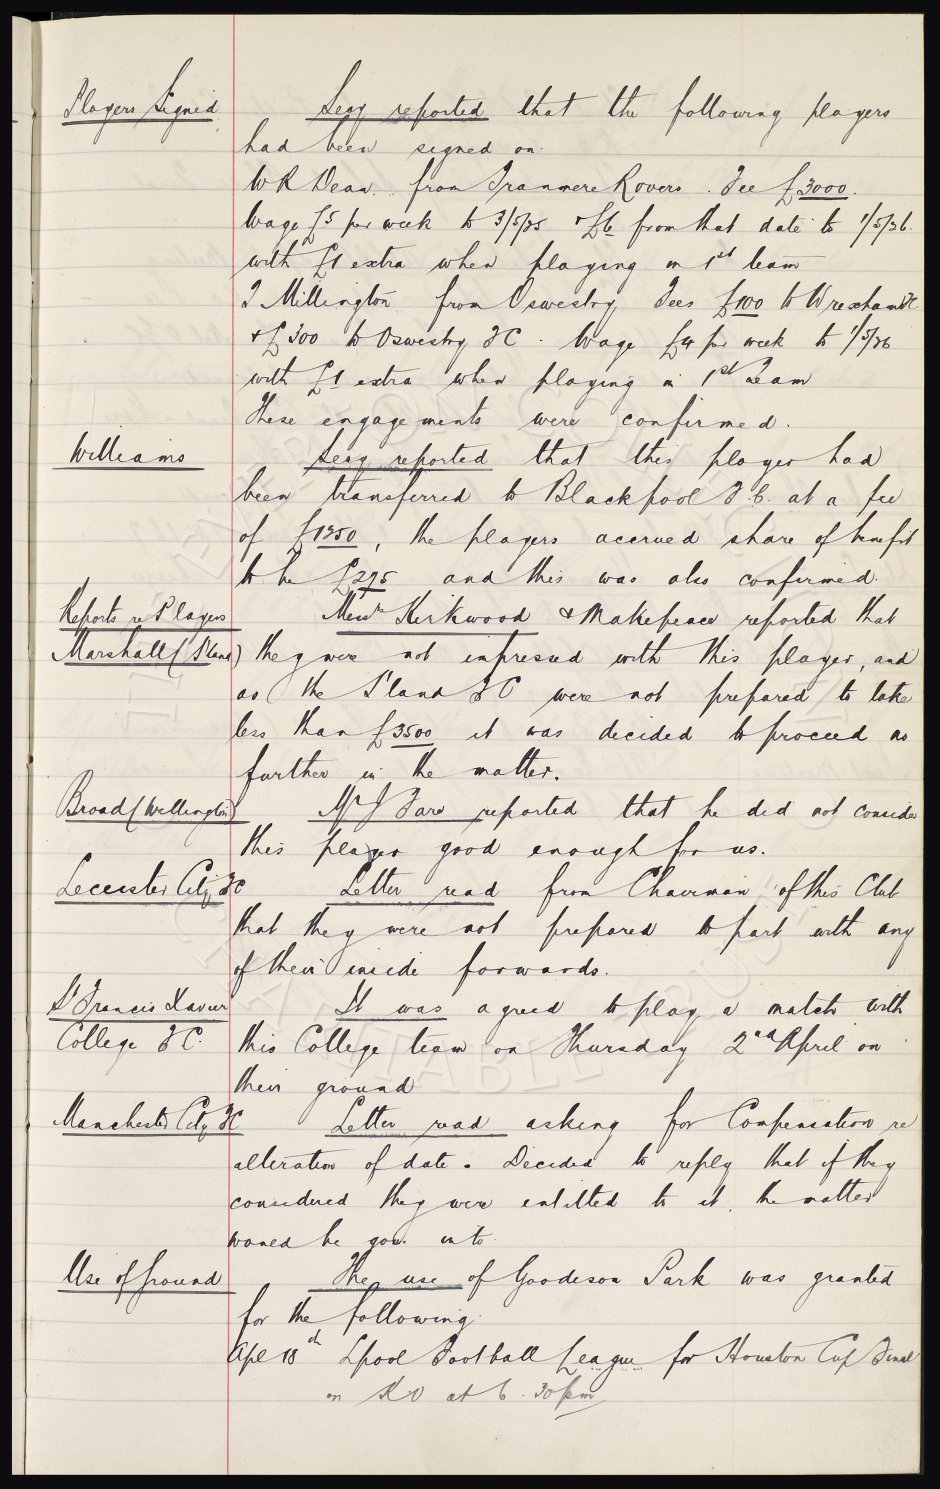 Players Signed Secy reported that the following players
had been signed on.
W R Dean from Tranmere Rovers. Fee £3000.
Wage £5 per week to 3/5/25 & £6 from that date to 1/5/26.
with £1 extra when playing in 1st team
T Millington from Oswestry Fees £100 to Wrexham FC
& £300 to Oswestry F C. Wage £4 per week to 1/5/26
with £1 extra when playing in 1st Team
These engagements were confirmed.
Williams Secy reported that this player had
been transferred to Blackpool F.C. at a fee
of £1250, the players accrued share of benefit
to be £275 and this was also confirmed.
Reports re Players Messrs Kirkwood & Makepeace reported that
Marshall (S'land) they were not impressed with this player, and
as the S'land F C were not prepared to take
less than £3500 it was decided to proceed no
further in the matter.
Broad (Wellington) Mr J Fare reported that he did not consider
this player good enough for us.
Leicester City FC Letter read from Chairman of this Club
that they were not prepared to part with any
of their inside forwards.
St Francis Xavier It was agreed to play a match with
College F C. this College team on Thursday 2nd April on
their ground
Manchester City FC Letter read asking for Compensation re
alteration of date. Decided to reply that if they
considered they were entitled to it, the matter
would be gone into.
Use of Ground The use of Goodison Park was granted
for the following.
Apl 18th Lpool Football League for Houston Cup Final
on K O at 6.30pm